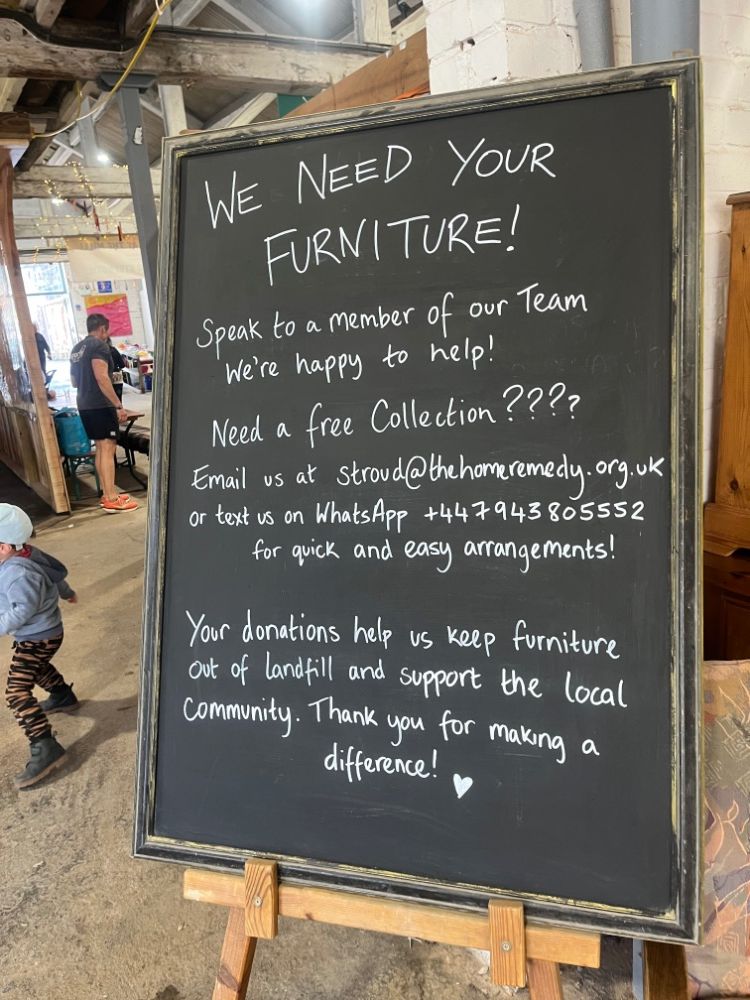 WE NEED YOUR
FURNITURE!
Speak to a member of our Team
We're happy to help!
Need a free Collection????
Email us at stroud@thehomeremedy.org.uk
or text us on WhatsApp +447943805552
for quick and easy arrangements!
Your donations help us keep furniture
out of landfill and support the local
community. Thank you for making a
difference!